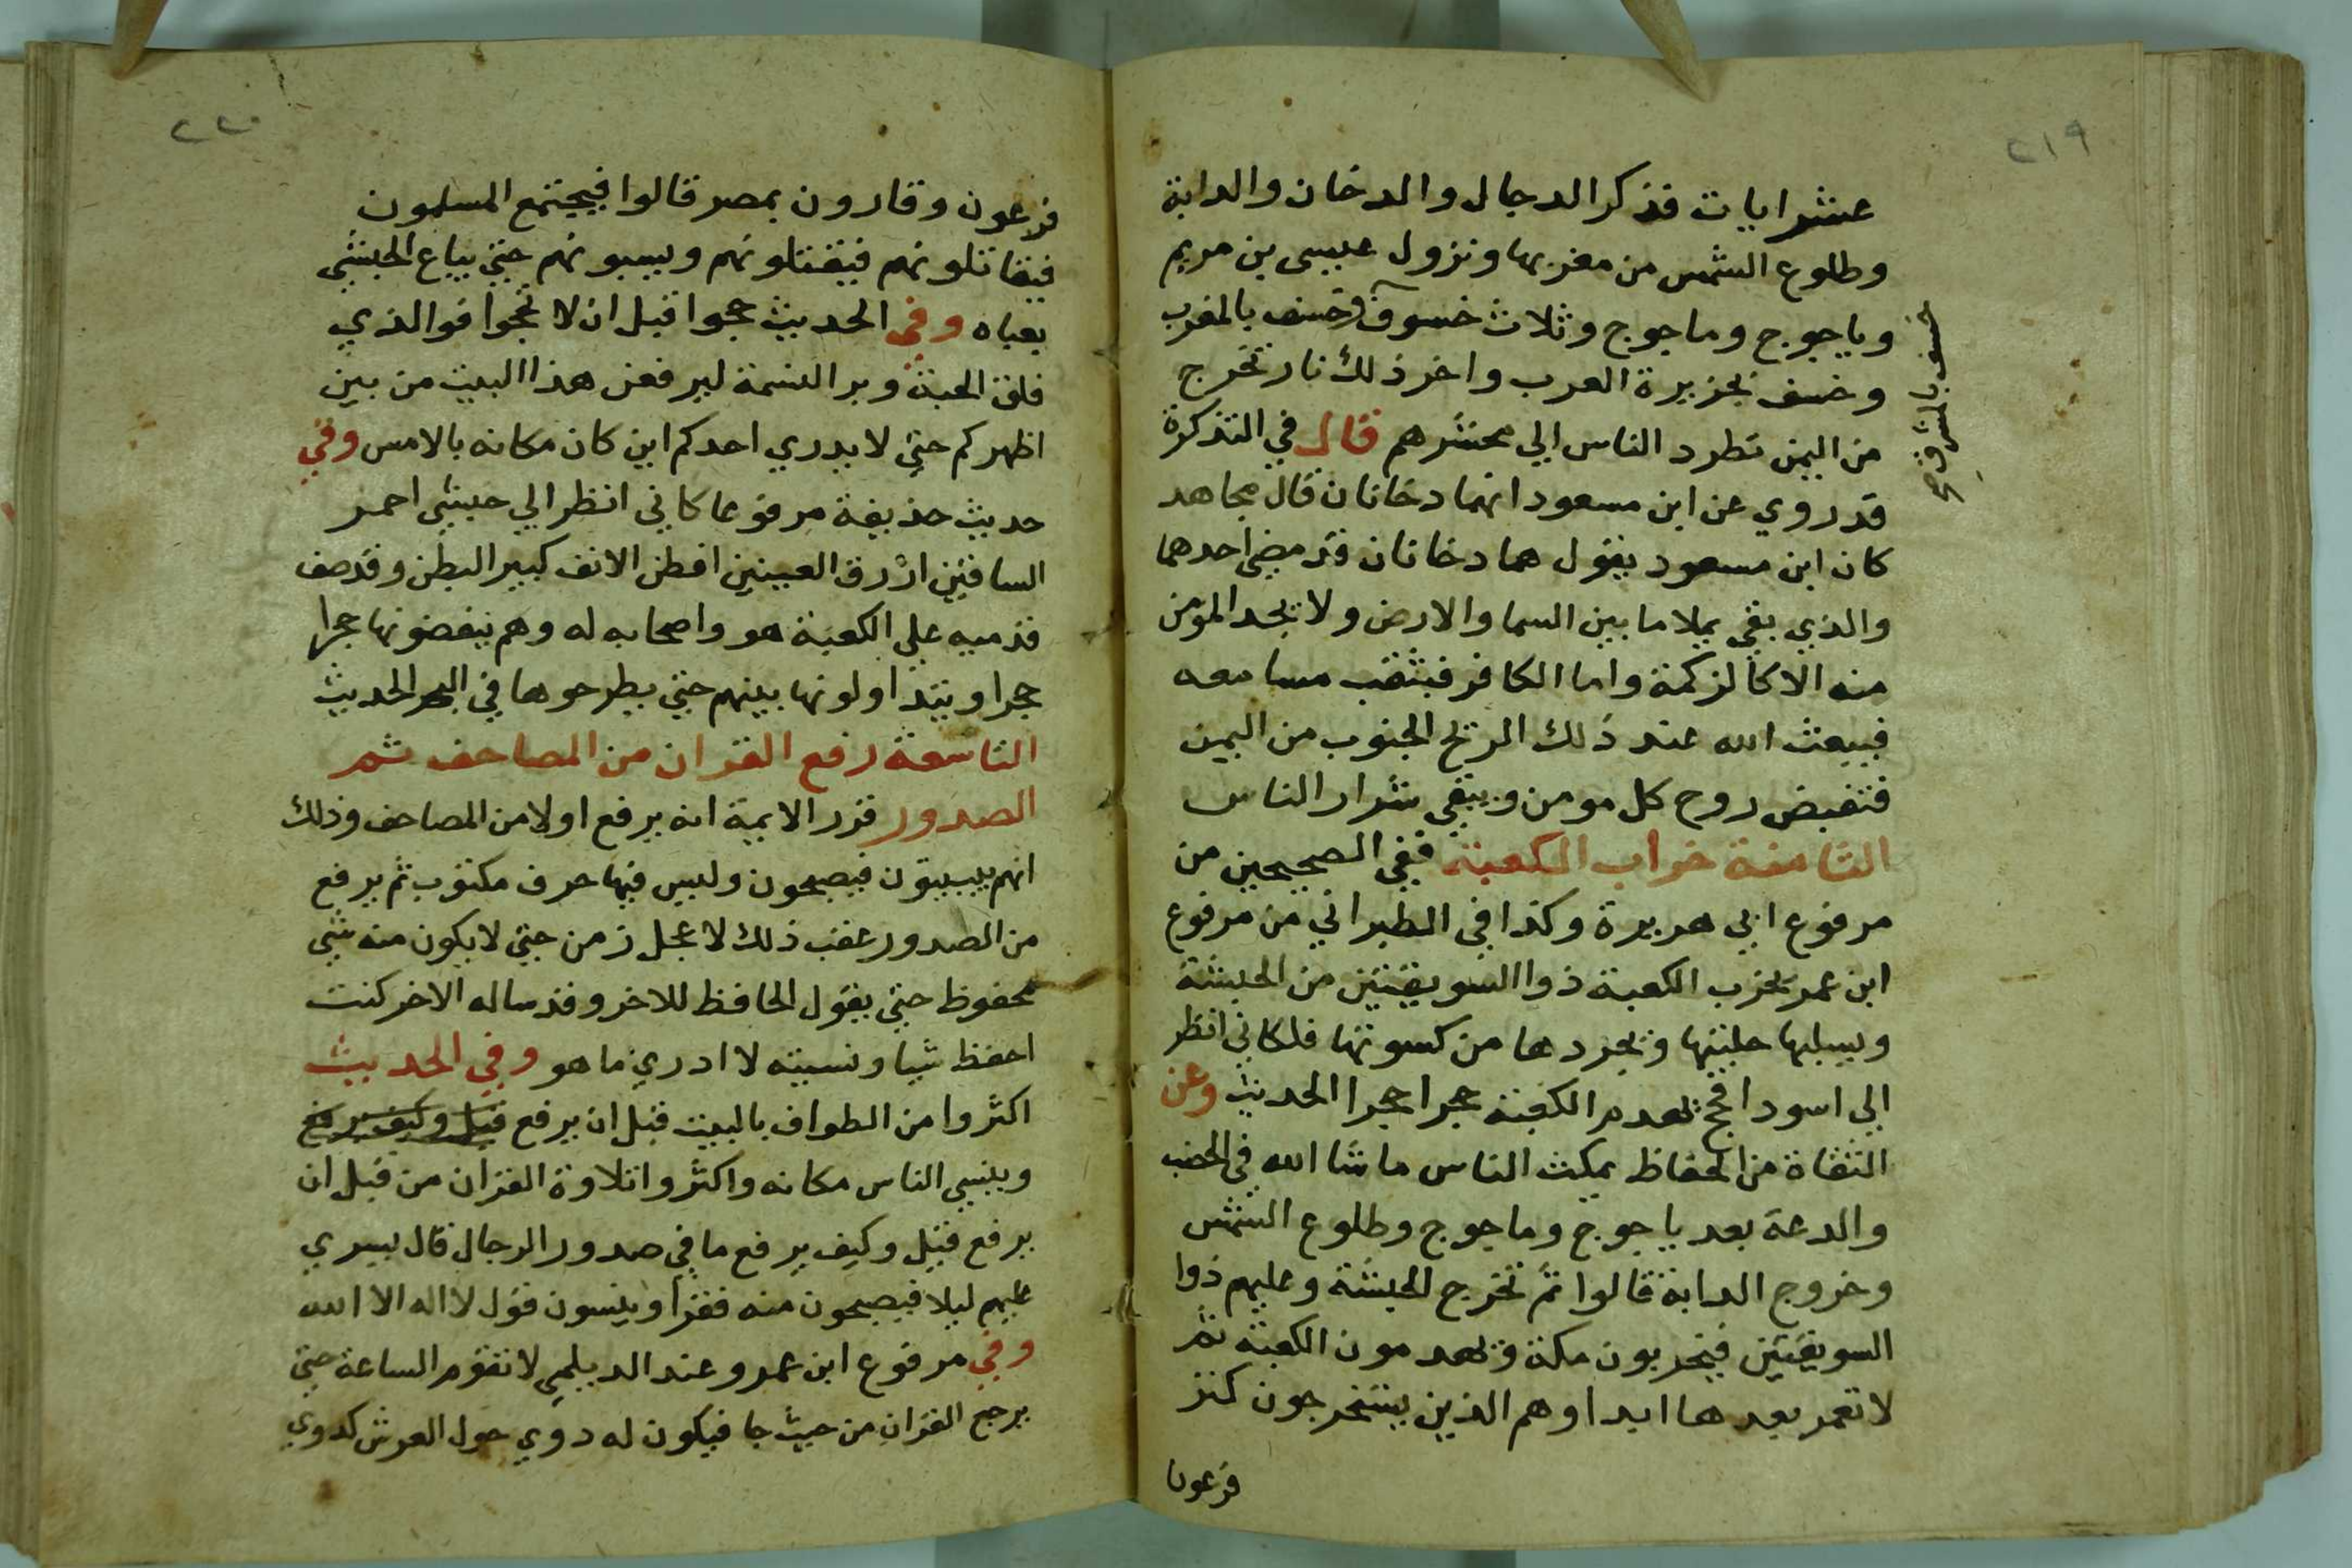 ٢١٩
عشر ايات فذكر الدجال والدخان والدابة
وطلوع الشمس من مغربها ونزول عيسى بن مريم
وياجوج وماجوج وثلاث خسوف وخسف بالمغرب
خسف بالمشرق صح
وخسف بجزيرة العرب واخر ذلك نار تخرج
من اليمن تطرد الناس الي محشرهم قال في التذكرة
قد روي عن ابن مسعود انهما دخانان قال مجاهد
كان ابن مسعود يقول هما دخانان قد مضي احدهما
والذي بقي يملا ما بين السما والارض ولا يجد المومن
منه الا كالزكمة واما الكافر فيثقب مسامعه
فيبعث الله عند ذلك الريح الجنوب من اليمن
فتقبض روح كل مومن ويبقي شرار الناس
الثامنة خراب الكعبة ففي الصحيحين من
مرفوع ابي هريرة وكذا في الطبراني من مرفوع
ابن عمر يخرب الكعبة ذوا السويقتين من الحبشة
ويسلبها حليتها ويجردها من كسوتها فلكاني انظر
الي اسود افحج يهدم الكعبة حجرا حجرا الحديث وعن
الثقاة من الحفاظ يمكث الناس ما شا الله في الخصب
والدعة بعد ياجوج وماجوج وطلوع الشمس
وخروج الدابة قالوا ثم تخرج الحبشة وعليهم ذوا
السويقتين فيخربون مكة ويهدمون الكعبة ثم
لا تعمر بعدها ابدا وهم الذين يستخرجون كنز
فرعون
٢٢٠
فرعون وقارون بمصر قالوا فيجتمع المسلمون
فيقاتلونهم فيقتلونهم ويسبونهم حتي يباع الحبشي
بعباه وفي الحديث حجوا قبل ان لا تحجوا فوالذي
فلق الحبة وبرا النسمة ليرفعن هذا البيت من بين
اظهركم حتي لا يدري احدكم اين كان مكانه بالامس وفي
حديث حذيفة مرفوعا كاني انظر الي حبشي احمر
الساقين ازرق العينين افطن الانف كبير البطن وقد صف
قدميه علي الكعبة هو واصحابه له وهم ينقضونها حجرا
حجرا ويتداولونها بينهم حتي يطرحوها في البحر الحديث
التاسعة رفع القران من المصاحف ثم
الصدور قرر الايمة انه يرفع اولا من المصاحف وذلك
انهم يبيتون فيصبحون وليس فيها حرف مكتوب ثم يرفع
من الصدور عقب ذلك لاعجل زمن حتي لا يكون منه شي
محفوظ حتي يقول الحافظ للاخر وقد ساله الاخر كنت
احفظ شيا ونسيته لا ادري ما هو وفي الحديث
اكثروا من الطواف بالبيت قبل ان يرفع قيل وكيف يرفع
وينسي الناس مكانه واكثروا تلاوة القران من قبل ان
يرفع قيل وكيف يرفع ما في صدور الرجال قال يسري
عليهم ليلا فيصبحون منه فقرا وينسون قول لا اله الا الله
وفي مرفوع ابن عمرو عند الديلمي لا تقوم الساعة حتي
يرجع القران من حيث جا فيكون له دوي حول العرش كدوي